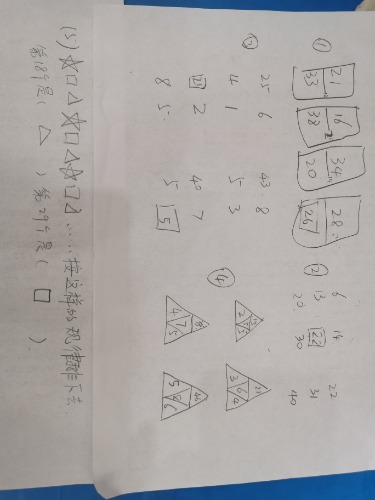 ①
21 16 34 28
33 38 20 26
②
6 14 22
13 22 31
20 30 40
③
25 6 43 8
4 1 5 3
2 40 7
8 5 5 5
④
3 6 4
4 7 5
5 8 6
(5) ☆□△☆□△☆□△……按这样的规律排下去
第18个是( △ ) 第29个是( □ )